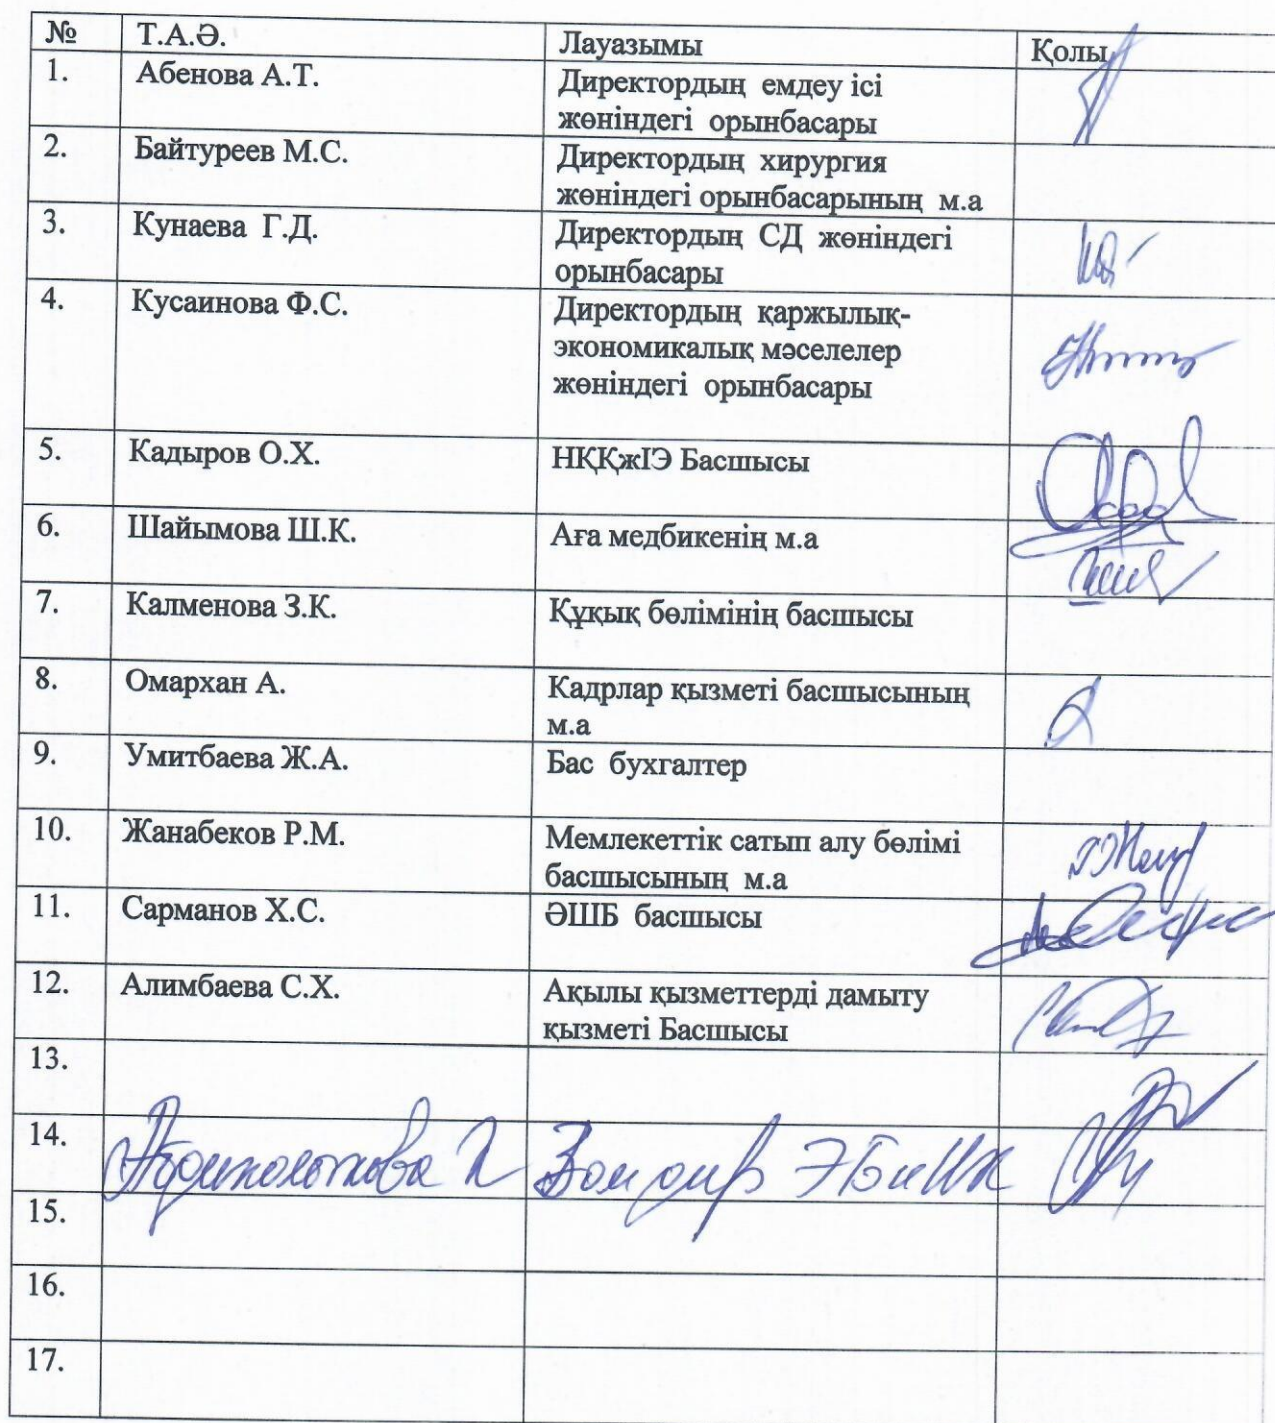 № Т.А.Ә. Лауазымы Қолы
1. Абенова А.Т. Директордың емдеу ісі
жөніндегі орынбасары
2. Байтуреев М.С. Директордың хирургия
жөніндегі орынбасарының м.а
3. Кунаева Г.Д. Директордың СД жөніндегі
орынбасары
4. Кусаинова Ф.С. Директордың қаржылық-
экономикалық мәселелер
жөніндегі орынбасары
5. Кадыров О.Х. НҚҚжІЭ Басшысы
6. Шайымова Ш.К. Аға медбикенің м.а
7. Калменова З.К. Құқық бөлімінің басшысы
8. Омархан А. Кадрлар қызметі басшысының
м.а
9. Умитбаева Ж.А. Бас бухгалтер
10. Жанабеков Р.М. Мемлекеттік сатып алу бөлімі
басшысының м.а
11. Сарманов Х.С. ӘШБ басшысы
12. Алимбаева С.Х. Ақылы қызметтерді дамыту
қызметі Басшысы
13.
14.
15.
16.
17.